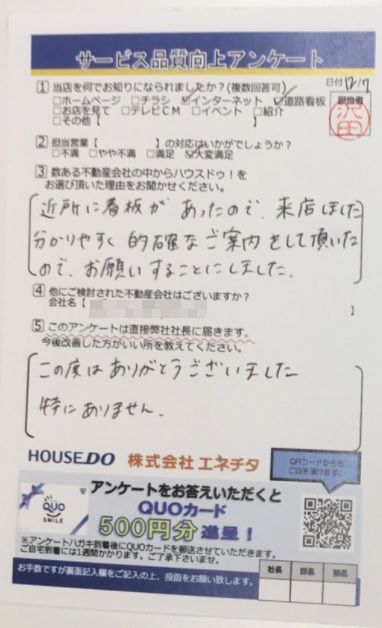 サービス品質向上アンケート
1 当店を何でお知りになられましたか?(複数回答可) 日付12/7
□ホームページ □チラシ ☑インターネット ☑道路看板 担当者
□お店を見て □テレビCM □イベント □紹介 沢田
□その他【 】
2 担当営業【 】の対応はいかがでしょうか?
□不満 □やや不満 □満足 ☑大変満足
3 数ある不動産会社の中からハウスドゥ!を
お選び頂いた理由をお聞かせください。
近所に看板があったので、来店しました
分かりやすく的確なご案内をして頂いた
ので、お願いすることにしました。
4 他にご検討された不動産会社はございますか?
会社名【 】
5 このアンケートは直接弊社社長に届きます。
今後改善した方がいい所を教えてください。
この度はありがとうございました
特にありません。
HOUSEDO 株式会社 エネチタ
QRコードからも
ご回答頂けます。
アンケートをお答えいただくと
QUOカード
500円分進呈!
QUO
SMILE
※アンケートハガキ到着後にQUOカードを郵送させていただきます。
ご自宅到着には1週間かかります。ご了承下さいませ。
お手数ですが裏面記入欄をご記入の上、投函をお願い致します。
社長 部長 店長